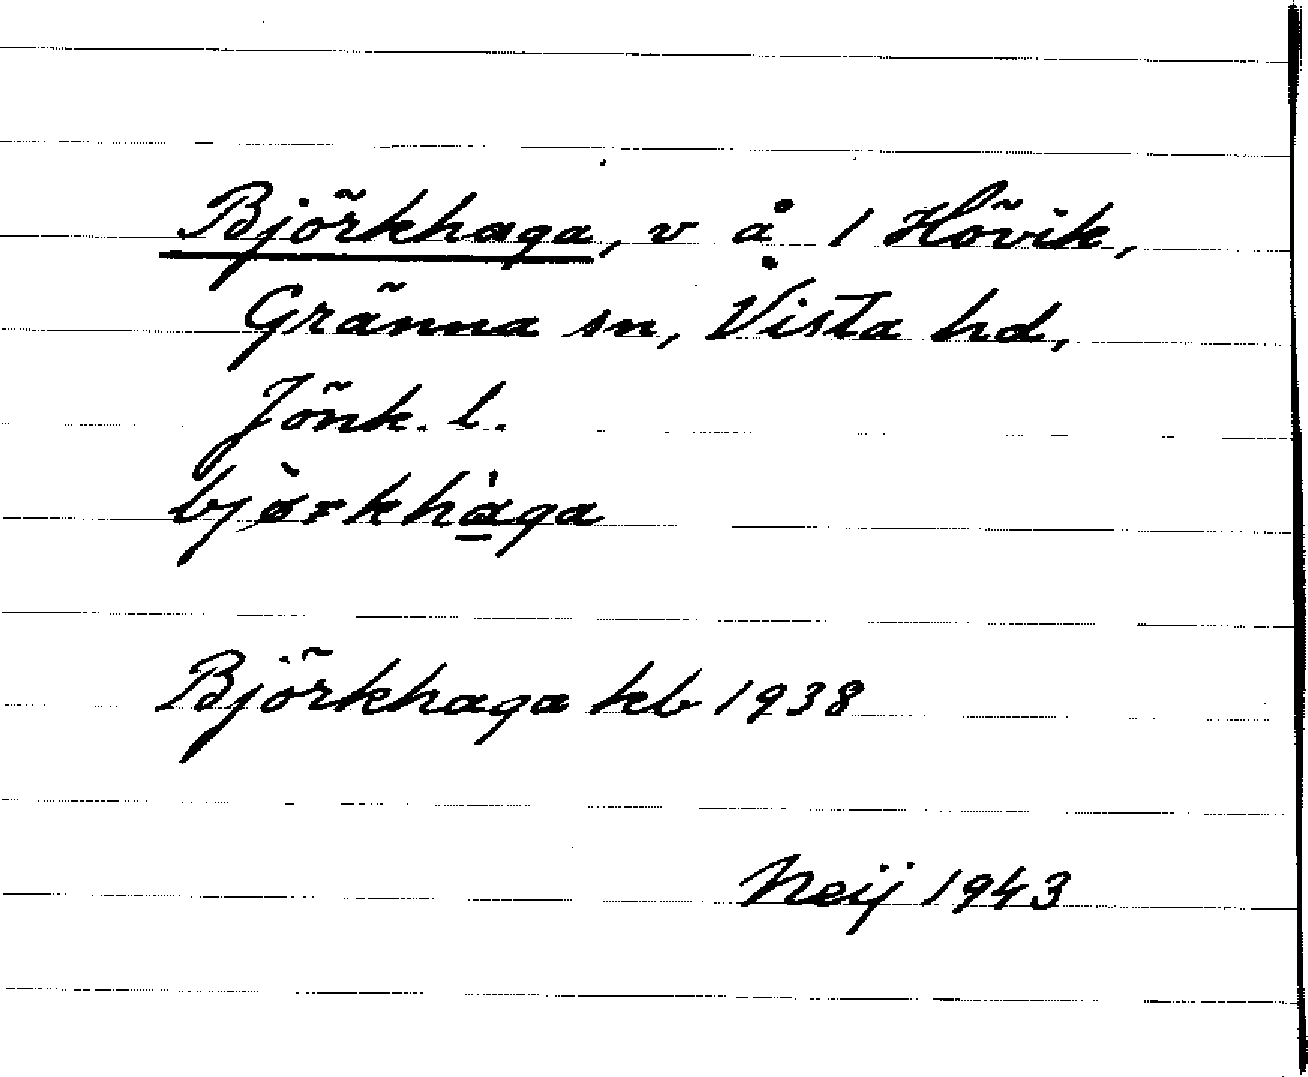 Björkhaga, v å 1 Hövik,
Gränna sn, Vista hd,
Jönk. l.
bjòrkhàga
Björkhaga kb 1938
Neij 1943